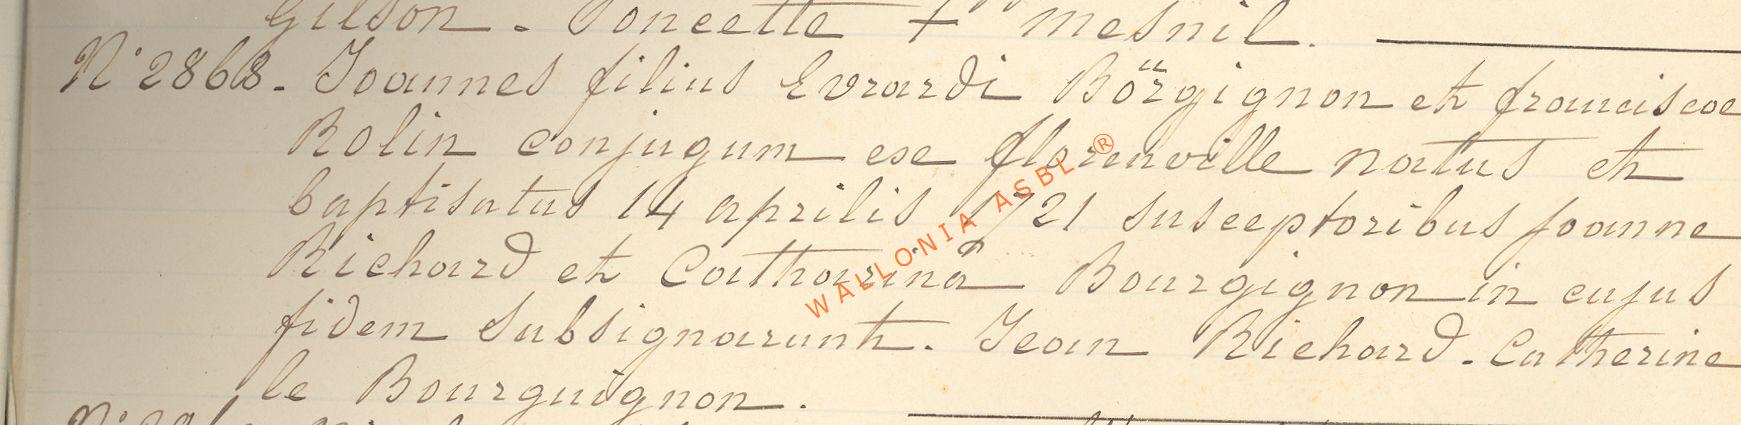 Gilson - Poncette + mesnil.
N° 2868 - Joannes filius Evrardi Börgignon et franciscae
Rolin conjugum ex florenville natus et
baptisatus 14 aprilis 1721 susceptoribus Joanne
Richard et Catharinâ Bourgignon in cujus
fidem subsignarunt. Jean Richard - Catherine
le Bourguignon.
WALLONIA ASBL ®